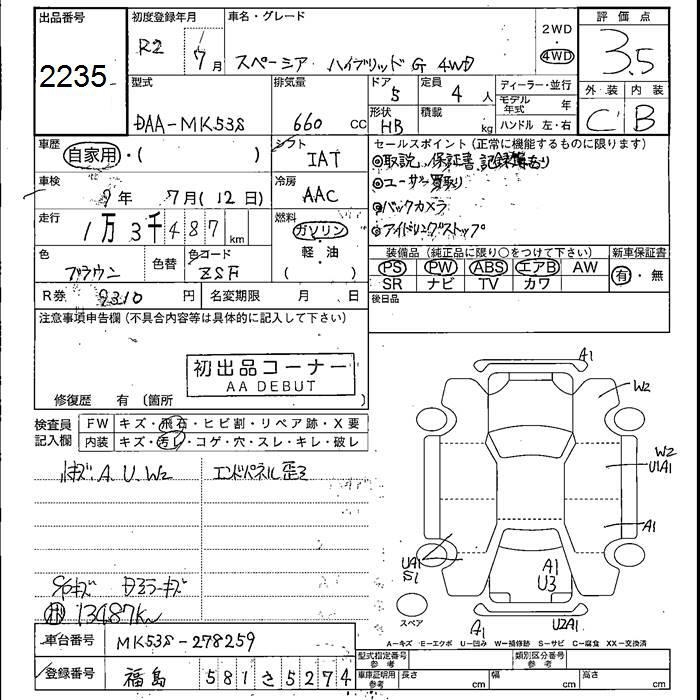 出品番号
2235
初度登録年月
R2 7月
車名・グレード
スペーシア ハイブリッドG 4WD
2WD
4WD
評価点
3.5
型式
DAA-MK53S
排気量
660 CC
ドア 5
形状 HB
定員 4 人
積載 kg
ディーラー・並行
モデル年式 年
ハンドル 左・右
外装 内装
C B
車歴
自家用・( )
シフト
IAT
車検
9年 7月(12日)
冷房
AAC
走行
1万3千487km
燃料
ガソリン
軽・油
( )
色
ブラウン
色替
色コード
ZSF
R券 9310 円
名変期限 月 日
セールスポイント(正常に機能するものに限ります)
◎取説、保証書、記録簿あり
◎ユーザー買取り
◎バックカメラ
◎アイドリングストップ
装備品(純正品に限り○をつけて下さい)
PS PW ABS エアB AW
SR ナビ TV カワ
新車保証書
有・無
後日品
注意事項申告欄(不具合内容等は具体的に記入して下さい)
初出品コーナー
AA DEBUT
修復歴 有(箇所
検査員記入欄
FW キズ・飛石・ヒビ割・リペア跡・X要
内装 キズ・汚れ・コゲ・穴・スレ・キレ・破レ
小キズ、A.U.W2
エンドパネル歪ミ
13487km
車台番号 MK53S-278259
登録番号 福島 581さ5274
A1
W2
W2
U1A1
A1
UA1
S1
A1
U3
A1
U2A1
スペア
A-キズ E-エクボ U-凹み W-補修跡 S-サビ C-腐食 XX-交換済
型式指定番号 参考
類別区分番号 参考
車庫証明用 参考
長さ cm 幅 cm 高さ cm